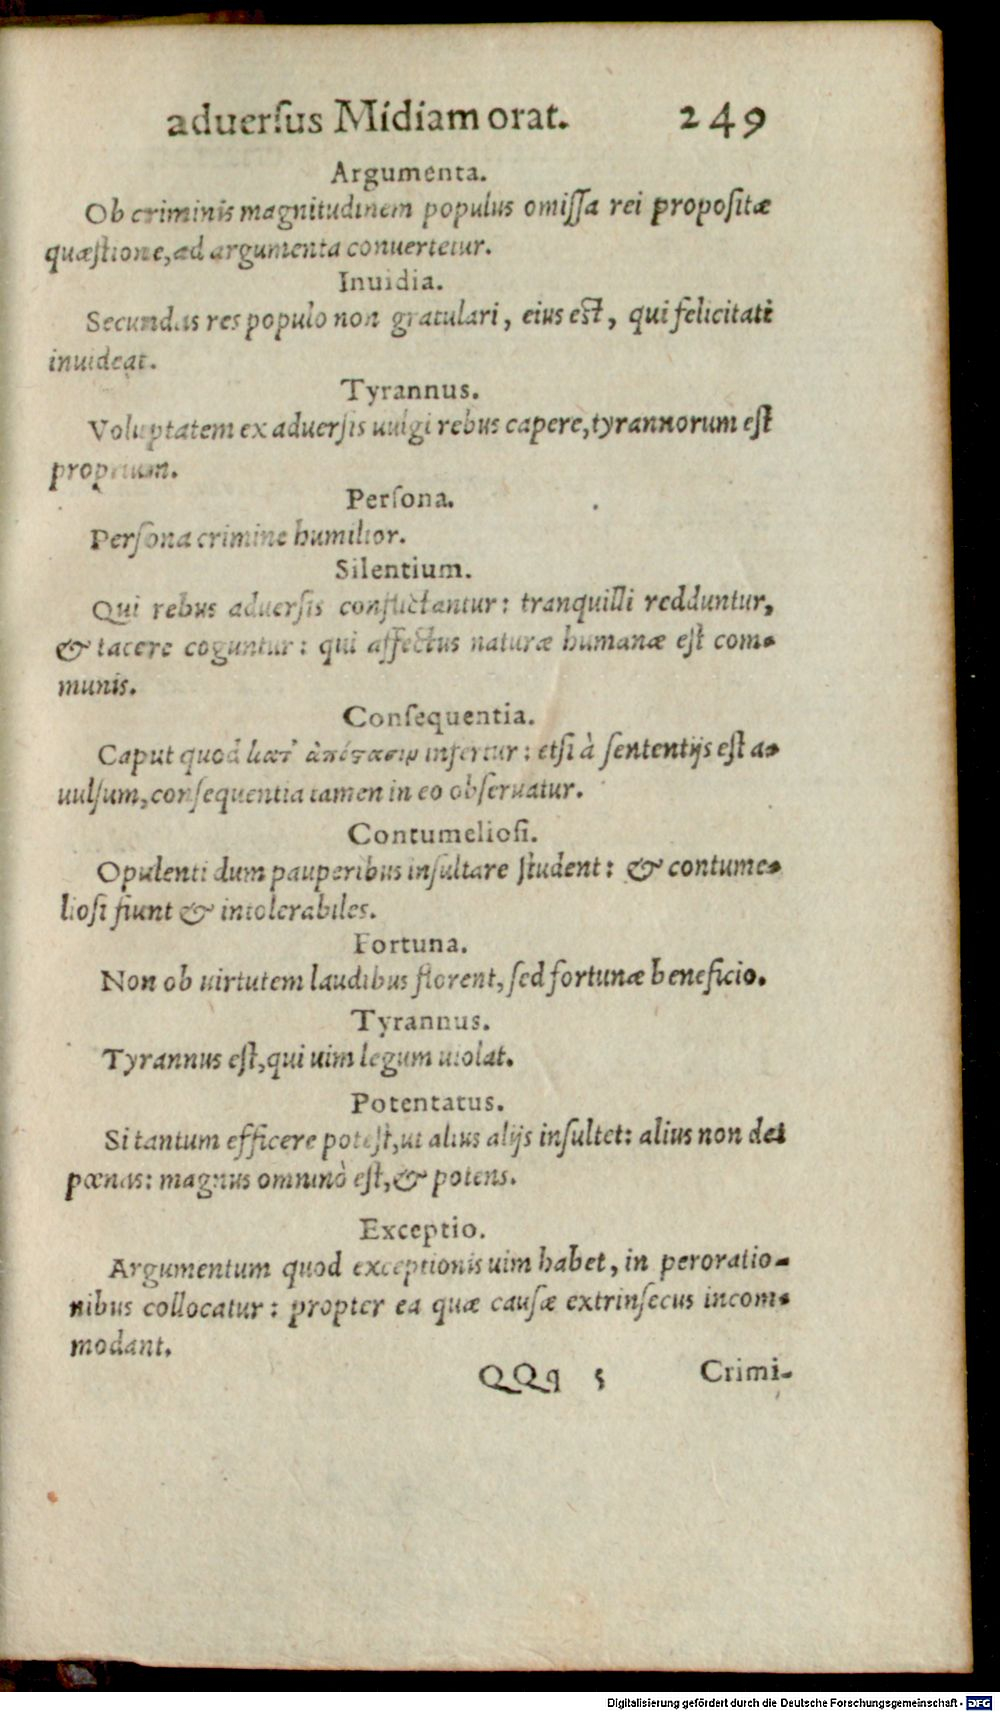 aduersus Midiam orat. 249
Argumenta.
Ob criminis magnitudinem populus omiſſa rei propoſitæ
quæſtione, ad argumenta conuertetur.
Inuidia.
Secundas res populo non gratulari, eius eſt, qui felicitati
inuideat.
Tyrannus.
Voluptatem ex aduerſis uulgi rebus capere, tyrannorum eſt
proprium.
Perſona.
Perſona crimine humilior.
Silentium.
Qui rebus aduerſis conflictantur: tranquilli redduntur,
& tacere coguntur: qui affectus naturæ humanæ eſt com-
munis.
Conſequentia.
Caput quod κατ' ἀπόστασιν infertur: etſi à ſententijs eſt a-
uulſum, conſequentia tamen in eo obſeruatur.
Contumelioſi.
Opulenti dum pauperibus inſultare ſtudent: & contume-
lioſi fiunt & intolerabiles.
Fortuna.
Non ob uirtutem laudibus florent, ſed fortunæ beneficio.
Tyrannus.
Tyrannus eſt, qui uim legum uiolat.
Potentatus.
Si tantum efficere poteſt, ut alius alijs inſultet: alius non det
pœnas: magnus omninò eſt, & potens.
Exceptio.
Argumentum quod exceptionis uim habet, in peroratio-
nibus collocatur: propter ea quæ cauſæ extrinſecus incom-
modant.
QQq 5 Crimi-
Digitalisierung gefördert durch die Deutsche Forschungsgemeinschaft - DFG